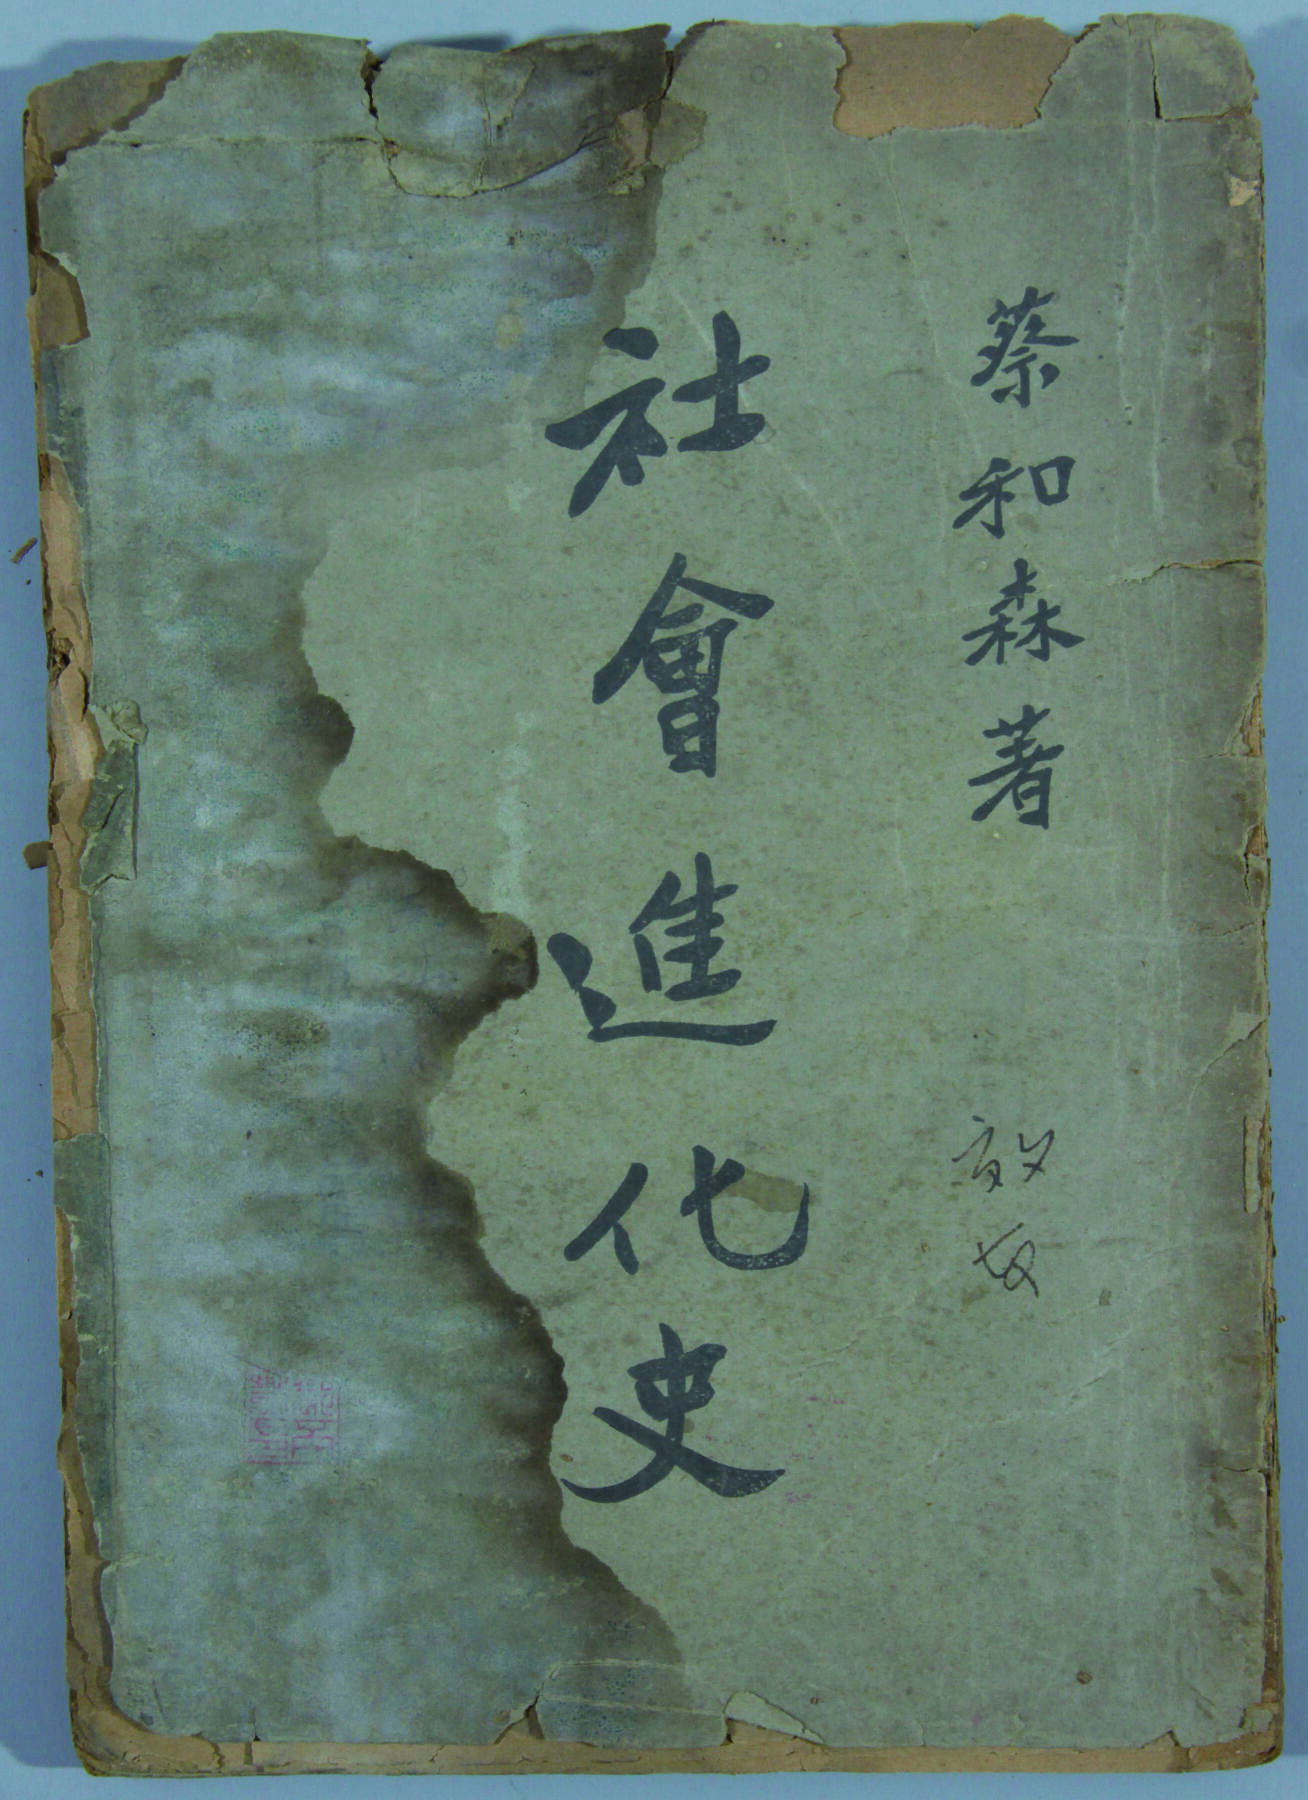 蔡和森著
社會進化史